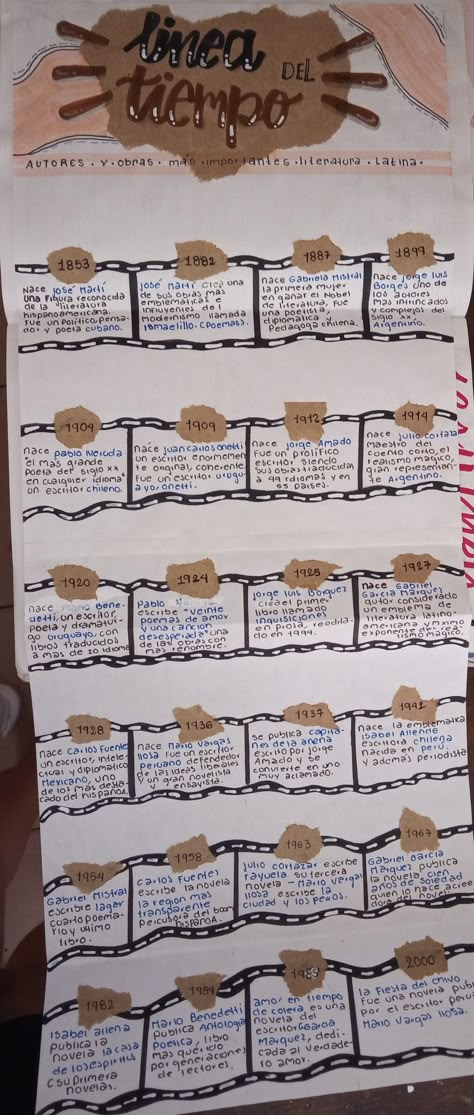 línea
DEL
tiempo
AUTORES · Y · obras · más · importantes · literatura · Latina ·
1853
nace José Martí
una figura reconocida
de la literatura
hispanoamericana.
Fue un político, pensa-
dor y poeta cubano.
1882
José Martí
una
de sus obras más
emblemáticas e
influyentes del
modernismo llamada
Ismaelillo (Poemas).
1887
nace Gabriela Mistral
la primera mujer
en ganar el Nobel
de literatura, fue
una poetisa,
diplomática y
Pedagoga chilena.
1899
nace Jorge Luis
Borges uno de
los autores
más intrincados
y complejos del
siglo xx,
Argentino.
1904
nace pablo Neruda
el más grande
poeta del siglo xx
en cualquier idioma
un escritor chileno.
1909
nace juan carlos onetti
un escritor enormemen
te original, coherente.
Fue un escritor urugu
ayo onetti.
1912
nace Jorge Amado
Fue un prolífico
escritor. siendo
sus obras traducidas
a 49 idiomas y en
55 países.
1914
nace Julio Cortazar
maestro del
cuento corto, el
realismo magico,
gran representan-
te Argentino.
1920
nace Mario Bene-
detti, un escritor,
poeta y dramatur-
go uruguayo, con
libros traducidos
a mas de 20 idioma
1924
Pablo
escribe "veinte
poemas de amor
y una canción
desesperada" una
de las obras con
más renombre.
1925
Jorge Luis Borquez
crea el primer
libro llamado
inquisiciones
en prosa, reedita-
do en 1994.
1927
nace Gabriel
García Márquez
autor considerado
un emblema de
literatura latino-
americana y maximo
exponente del rea-
lismo magico.
1928
nace Carlos Fuente
un escritor, intele
ctual y diplomatico
Mexicano, uno
de los más desta
cado del hispano.
1936
nace Mario Vargas
llosa fue un escritor
peruano defendedor
de las ideas liberales
y un gran novelista
y ensayista.
1937
se publica capita-
nes de la arena
escrito por Jorge
Amado y se
convierte en uno
muy aclamado.
1942
nace la emblematica
Isabel Allende
escritora chilena
nacida en perú.
y además periodista
1954
Gabriel Mistral
escribre lagar
cuarto poema-
rio y último
libro.
1958
Carlos Fuentes
escribe la novela
la region más
transparente
percusora del boom
hispanoa.
1963
julio cortazar escribe
rayuela su tercera
novela - Mario Vergas
llosa escribe la
ciudad y los peros.
1967
Gabriel Garcia
Márquez publica
la novela, cien
años de soledad
quien lo hace acree
dora del novela
1982
Isabel allena
publica la
novela la casa
de los espiritus
su primera
novelas.
1984
Mario Benedetti
publica Antología
poetica, libro
más querido
por generaciones
de lectores.
1985
amor en tiempo
de colera es una
novela del
escritor Garcia
Márquez, dedi-
cada al verdade-
ro amor.
2000
la Fiesta del chivo
fue una novela publ
por el escritor peru
Mario Vargas llosa.